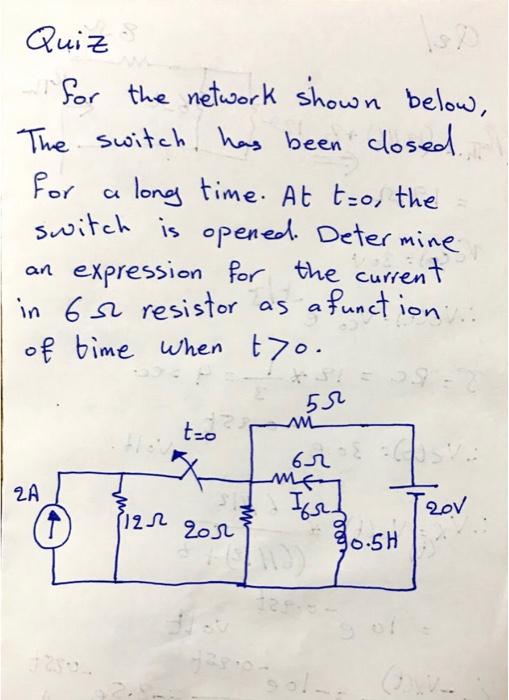 Quiz
for the network shown below,
The switch has been closed
for a long time. At t=0, the
switch is opened. Determine
an expression for the current
in 6Ω resistor as a function
of time when t>0.
5Ω
t=0
6Ω
2A
I6Ω
20V
12Ω
20Ω
0.5H